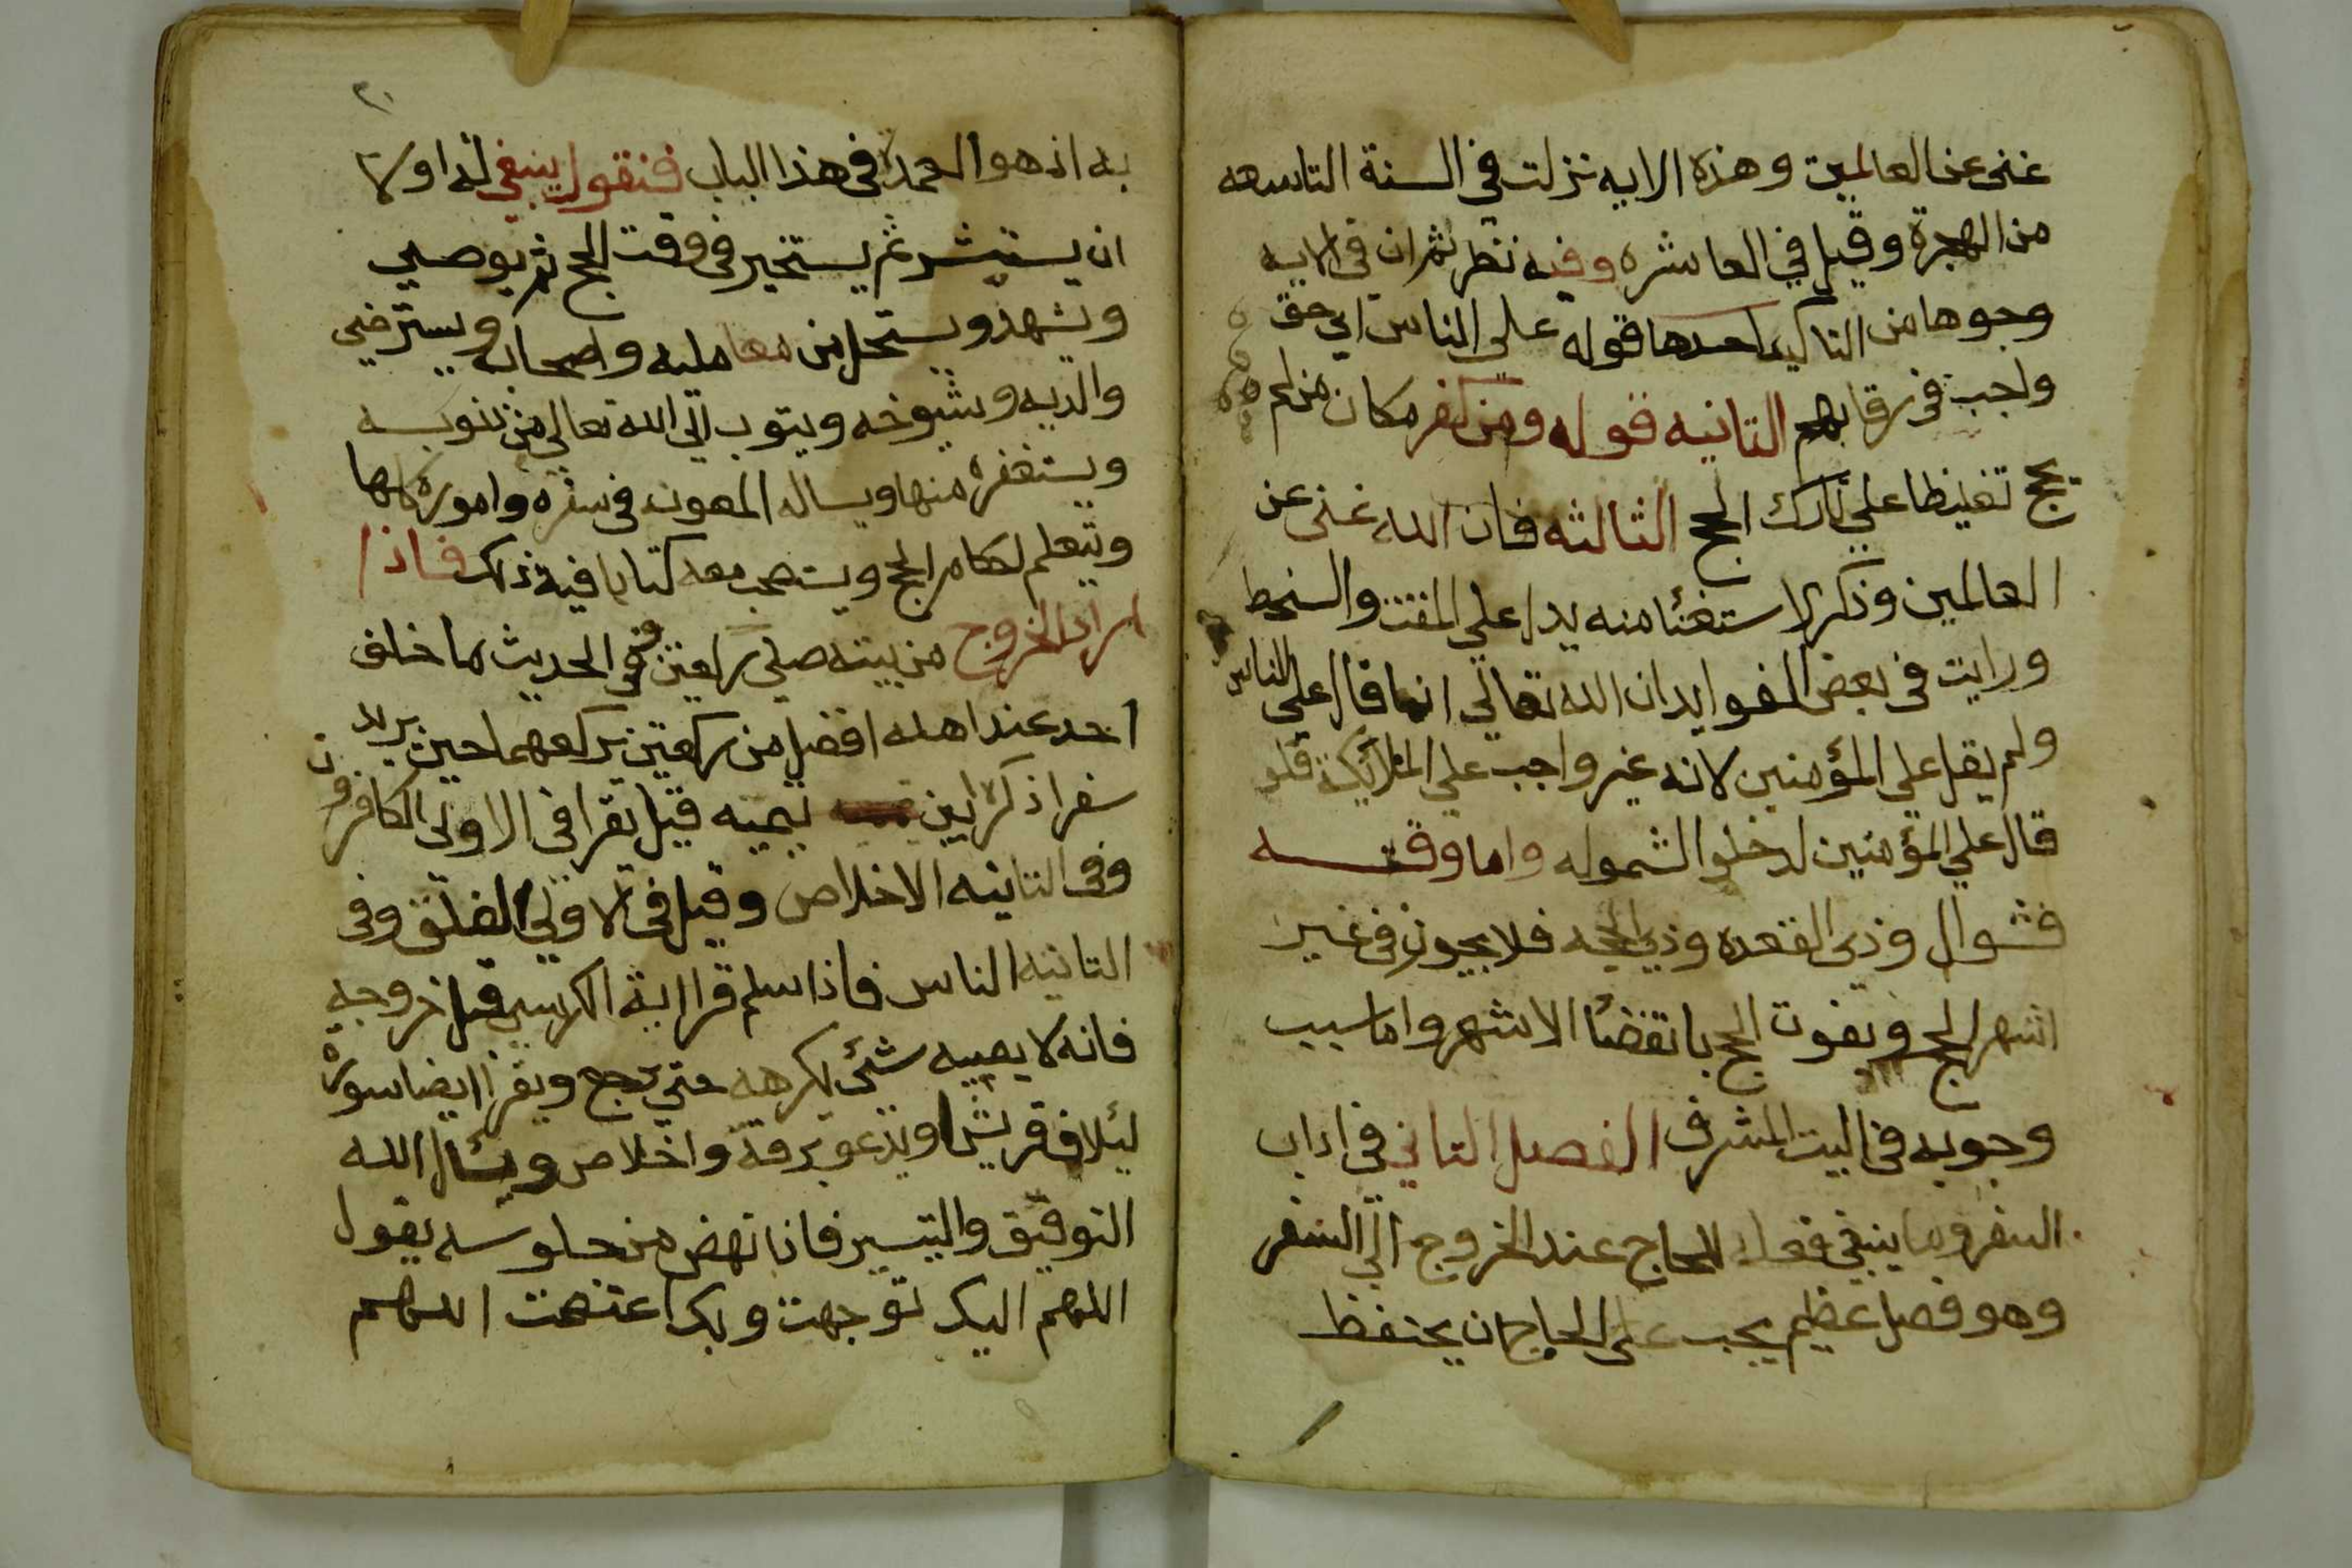 غنى عن العالمين وهذه الايه نزلت في السنة التاسعه
من الهجرة وقيل في العاشره وفيه نظر ثم ان في الايه
وجوها من التاكيد احدها قوله على الناس اي حق
واجب في رقابهم الثانيه قوله ومن كفر مكان من لم
يحج تغليظا علي تارك الحج الثالثه فان الله غنى عن
العالمين وذكر الاستغنا منه يدل علي المقت والسخط
ورايت في بعض الفوايد ان الله تعالي انما قال علي الناس
ولم يقل علي المؤمنين لانه غير واجب علي الملائكة فلو
قال علي المؤمنين لدخلوا لشموله واما وقته
فشوال وذى القعده وذي الحجه فلا يجوز في غير
اشهر الحج ويفوت الحج بانقضا الاشهر واما سبب
وجوبه في البيت المشرف الفصل الثاني في اداب
السفر وما ينبغي فعله للحاج عند الخروج الي السفر
وهو فصل عظيم يجب على الحاج ان يحتفظ
٢٠
به اذ هو العمدة في هذا الباب فنقول ينبغي له اولا
ان يستشير ثم يستخير في وقت الحج ثم يوصي
ويشهد ويستحل من معامليه واصحابه ويسترضي
والديه وشيوخه ويتوب الي الله تعالي من ذنوبه
ويستغفره منها ويساله المعونه في سفره واموره كلها
ويتعلم احكام الحج ويستصحب معه كتابا فيه ذلك فاذا
اراد الخروج من بيته صلي ركعتين ففي الحديث ما خلف
احد عند اهله افضل من ركعتين يركعهما حين يريد
سفرا ذكره ابن تيميه قيل يقرا في الاولى الكافرون
وفي الثانيه الاخلاص وقيل في الاولي الفلق وفي
الثانيه الناس فاذا سلم قرا اية الكرسي قبل خروجه
فانه لا يصيبه شئ يكرهه حتي يرجع ويقرا ايضا سورة
لئلاف قريش ويدعو برقة واخلاص ويسال الله
التوفيق والتيسير فاذا نهض من جلوسه يقول
اللهم اليك توجهت وبك اعتصمت اللهم